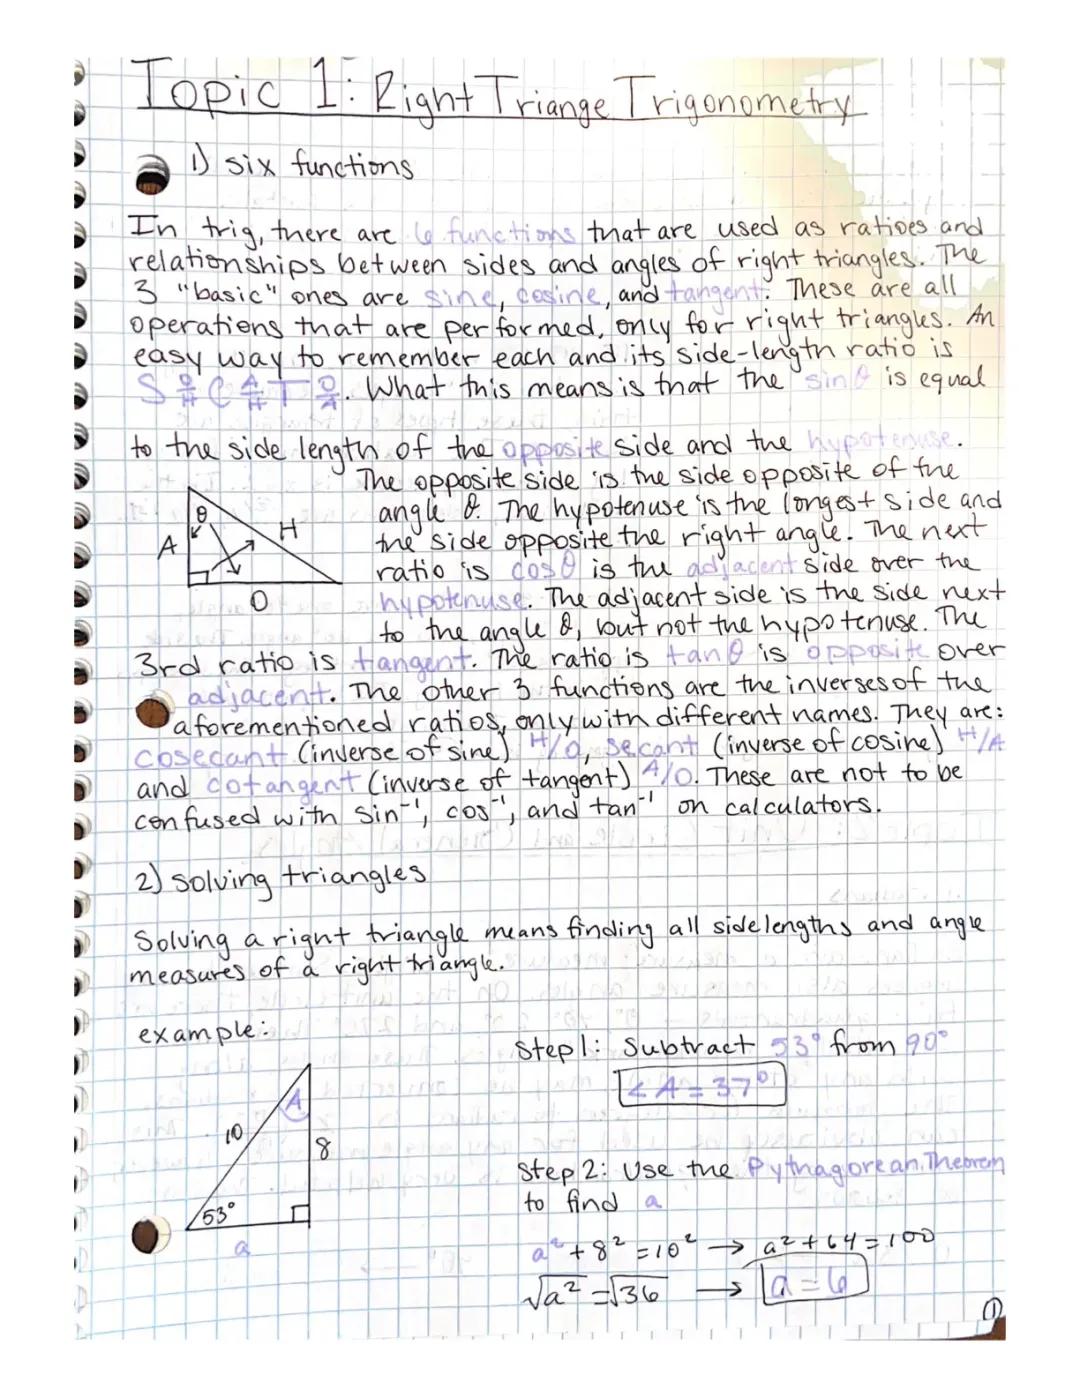 Topic 1: Right Triange Trigonometry
1) six functions
In trig, there are 6 functions that are used as ratioes and
relationships between sides and angles of right triangles. The
3 "basic" ones are sine, cosine, and tangent. These are all
operations that are performed, only for right triangles. An
easy way to remember each and its side-length ratio is
S O/H C A/H T O/A. What this means is that the sinθ is equal
to the side length of the opposite side and the hypotenuse.
The opposite side is the side opposite of the
angle θ. The hypotenuse is the longest side and
the side opposite the right angle. The next
ratio is cosθ is the adjacent side over the
hypotenuse. The adjacent side is the side next
to the angle θ, but not the hypotenuse. The
θ
A
H
O
3rd ratio is tangent. The ratio is tanθ is opposite over
adjacent. The other 3 functions are the inverses of the
aforementioned ratios, only with different names. They are:
cosecant (inverse of sine) H/O, secant (inverse of cosine) H/A
and cotangent (inverse of tangent) A/O. These are not to be
confused with sin⁻¹, cos⁻¹, and tan⁻¹ on calculators.
2) solving triangles
Solving a right triangle means finding all sidelengths and angle
measures of a right triangle.
example:
A
10
8
53°
a
Step 1: Subtract 53° from 90°
∠A = 37°
Step 2: Use the Pythagorean Theorem
to find a
a² + 8² = 10² → a² + 64 = 100
√a² = √36 → a = 6
1